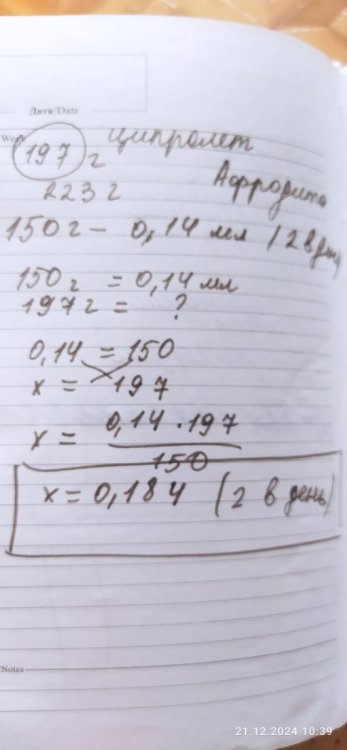 Дати/Date
Week
197 г ципролет
223 г Афродита
150 г – 0,14 мл (2 в день
150 г = 0,14 мл
197 г = ?
0,14 = 150
х = 197
х = 0,14 · 197
150
х = 0,184 (2 в день)
/Notes
21.12.2024 10:39